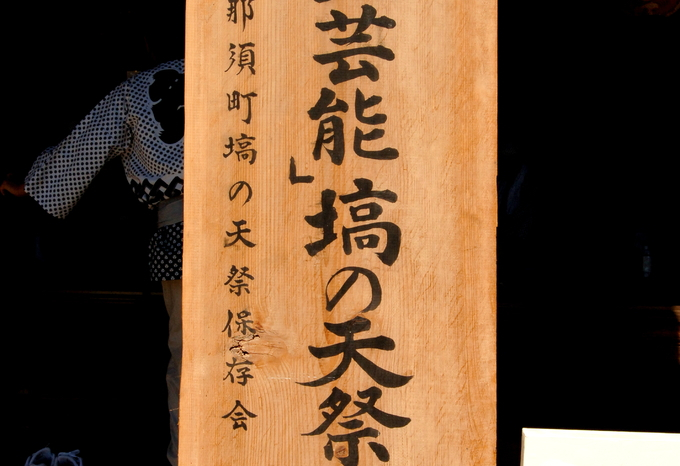 芸能」塙の天祭
那須町塙の天祭保存会